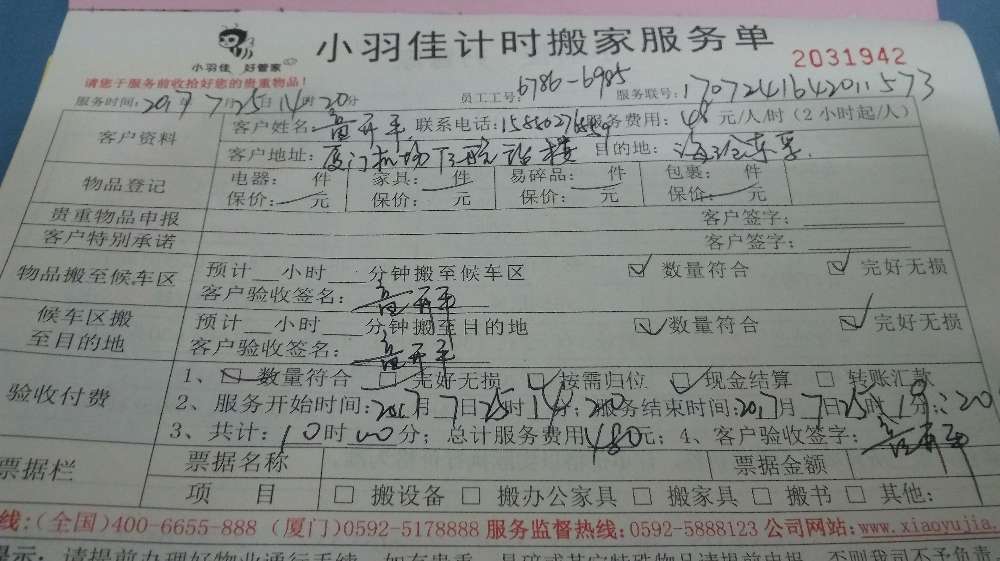 小羽佳计时搬家服务单
小羽佳 好管家
2031942
请您于服务前收拾好您的贵重物品!
服务时间:2017年7月25日14时20分 员工工号:6786-6985 服务联号:1707241642011573
客户资料 客户姓名: 开平 联系电话: 服务费用:48元/人/时(2小时起/人)
客户地址:厦门机场 目的地:海沧东孚
物品登记 电器: 件 家具: 件 易碎品: 件 包裹: 件
保价: 元 保价: 元 保价: 元 保价: 元
贵重物品申报 客户签字:
客户特别承诺 客户签字:
物品搬至候车区 预计 小时 分钟搬至候车区 数量符合 完好无损
客户验收签名: 开平
候车区搬至目的地 预计 小时 分钟搬至目的地 数量符合 完好无损
客户验收签名: 开平
验收付费 1、 数量符合 完好无损 按需归位 现金结算 转账汇款
2、服务开始时间:2017月7日25时14分:20 服务结束时间:2017月7日25时19:20
3、共计:10时00分;总计服务费用480元;4、客户验收签字: 开平
票据栏 票据名称 票据金额
项 目 搬设备 搬办公家具 搬家具 搬书 其他:
线:(全国)400-6655-888 (厦门)0592-5178888 服务监督热线:0592-5888123 公司网站:www.xiaoyujia.
提示:请提前办理好物业通行手续,如有贵重、易碎或其它特殊物品请提前申报,否则我司不予负责